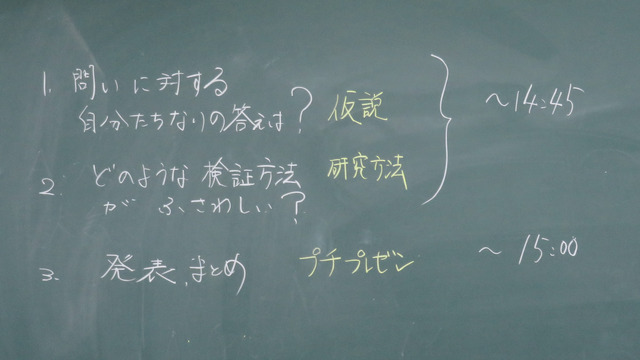 1. 問いに対する
自分たちなりの答えは? 仮説
～14:45
2. どのような検証方法 研究方法
がふさわしい?
3. 発表、まとめ プチプレゼン ～15:00